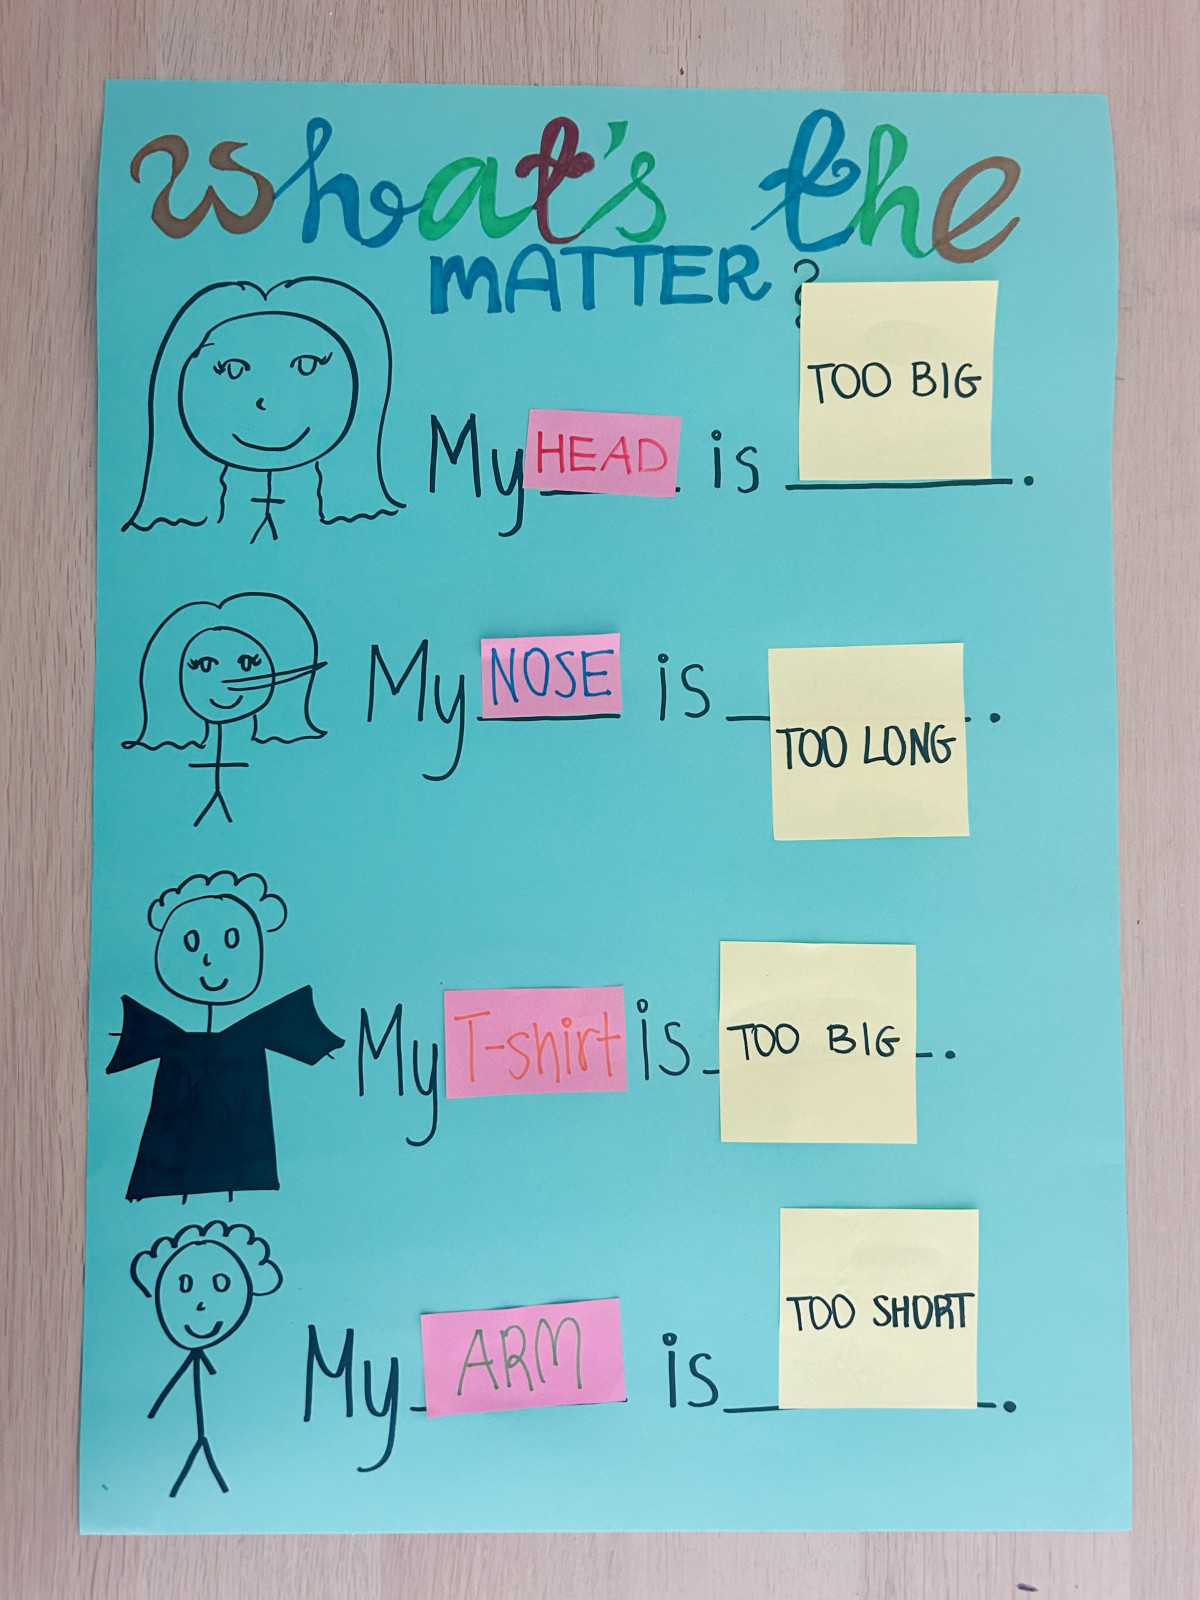 What's the
MATTER?
My HEAD is TOO BIG.
My NOSE is TOO LONG.
My T-shirt is TOO BIG.
My ARM is TOO SHORT.